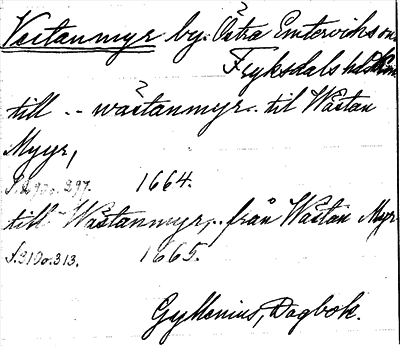 Västanmyr by. Östra Emtervik sn.
Fryksdals hd.
till .. wästanmyr.. til Wästan
Myyr,
S. 290 o. 397. 1664.
till Wästanmyr,.. från Wästan Myr
S. 310 o. 313. 1665.
Gyllenius, Dagbok.